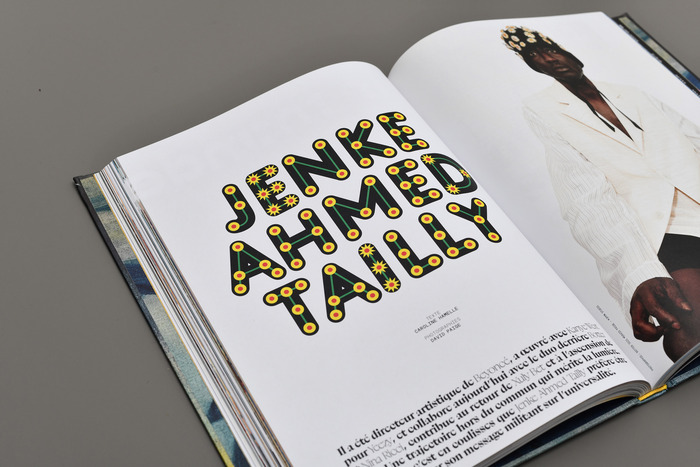 JENKE
AHMED
TAILLY
TEXTE
CAROLINE HAMELLE
PHOTOGRAPHIES
DAVID PAIGE
Il a été directeur artistique de Beyoncé, a œuvré avec Kanye West
pour Yeezy, et collabore aujourd'hui avec le duo derrière
Nina Ricci, contribue au retour de Xuly Bët et à l'ascension de
Une trajectoire hors du commun qui mérite la lumière,
c'est en coulisses que Jenke Ahmed Tailly préfère
son message militant sur l'universalité.